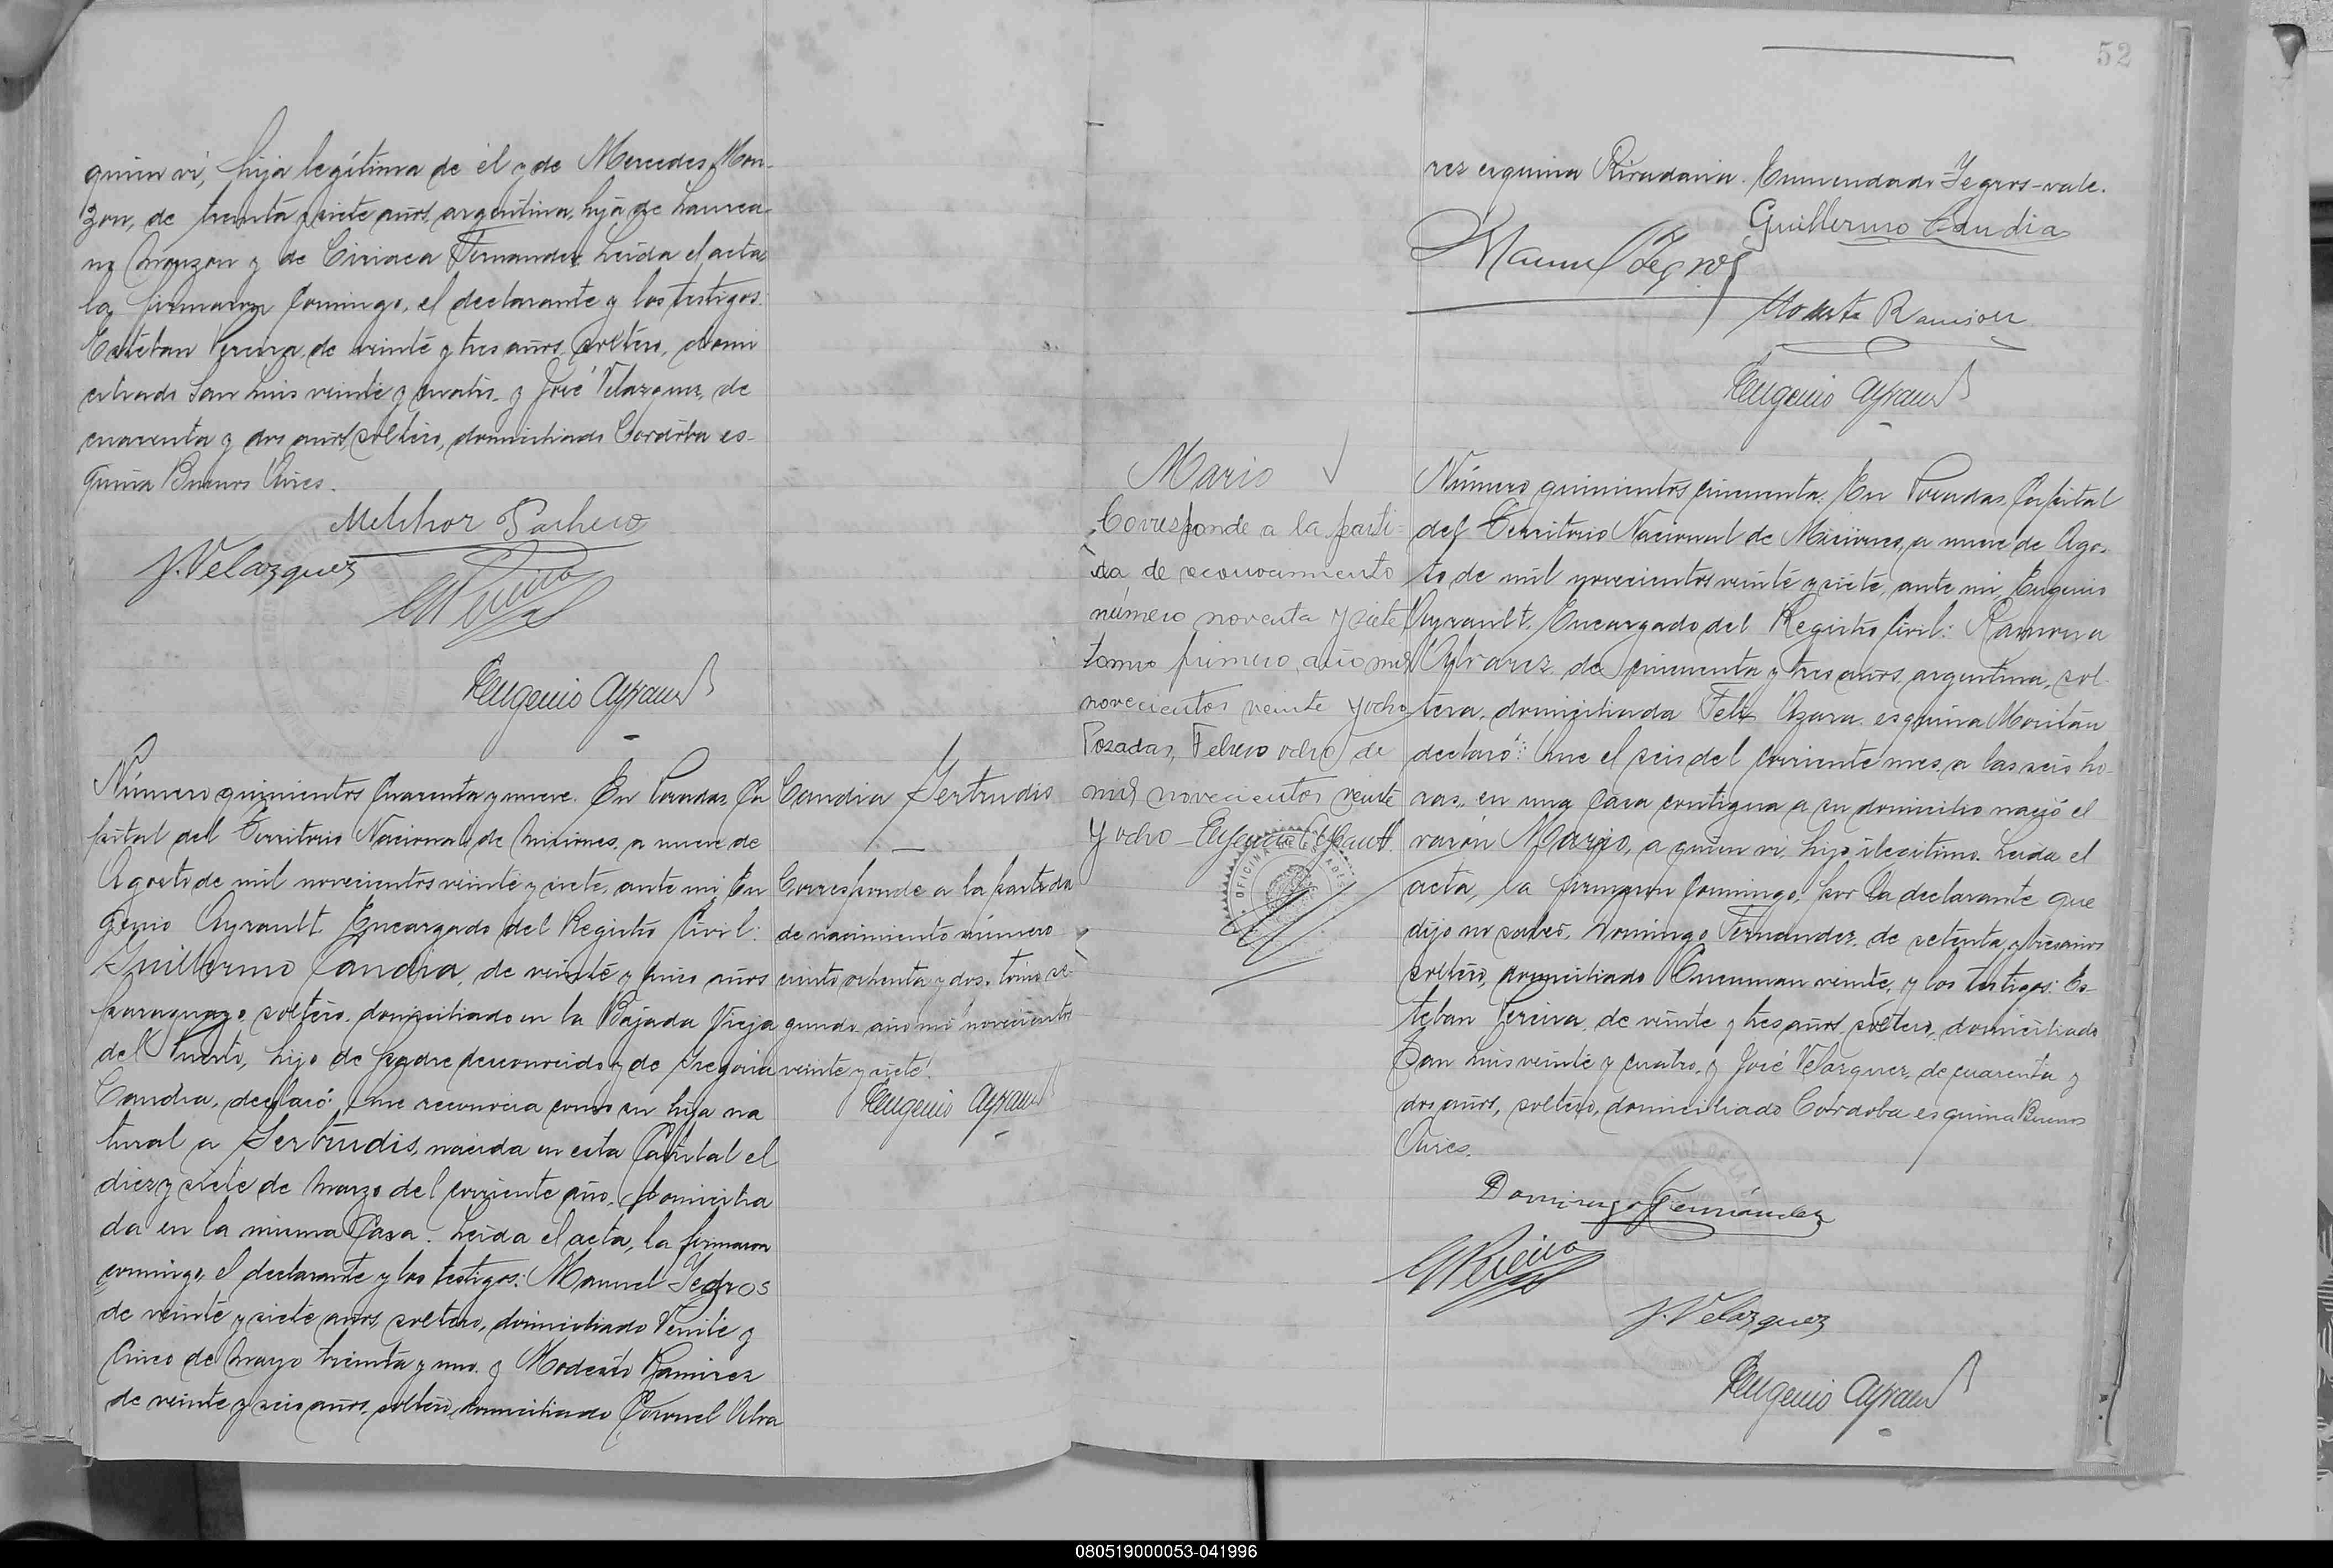 quien vi, hija legítima de él y de Mercedes Mon-
zon, de treinta y siete años, argentina, hija de Laurea-
no Monzon y de Ciriaca Fernandez. Leida el acta
la firmaron conmigo, el declarante y los testigos:
Estéban Pereira, de veinte y tres años, soltero, domi
ciliado San Luis veinte y cuatro, y José Velazquez, de
cuarenta y dos años, soltero, domiciliado Cordoba es-
quina Buenos Aires.
Melchor Pacheco
J. Velazquez
E Pereira
Eugenio Ayrault
Número quinientos cuarenta y nueve. En Posadas, Ca
pital del Territorio Nacional de Misiones, a nueve de
Agosto de mil novecientos veinte y siete, ante mi, Eu
genio Ayrault, Encargado del Registro Civil:
Guillermo Candia, de veinte y cinco años
paraguayo, soltero, domiciliado en la Bajada Vieja
del Puerto, hijo de padre desconocido y de Gregoria
Candia, declaró: Que reconocia como su hija na
tural a Gertrudis, nacida en esta Capital el
diez y siete de Marzo del corriente año, domicilia
da en la misma Casa. Leida el acta, la firmaron
conmigo, el declarante y los testigos: Manuel Yegros
de veinte y siete años, soltero, domiciliado Veinte y
Cinco de Mayo treinta y uno, y Modesto Ramirez
de veinte y seis años, soltero, domiciliado Coronel Alva
Candia Gertrudis
Corresponde a la partida
de nacimiento número
ciento ochenta y dos, tomo se-
gundo año mil novecientos
veinte y siete.
Eugenio Ayrault
52
rez esquina Rivadavia. Enmendado Yegros-vale.
Guillermo Candia
Manuel Yegros
Modesto Ramirez
Eugenio Ayrault
Mario
Corresponde a la parti-
da de reconocimiento
número noventa y siete
tomo primero, año mil
novecientos veinte y ocho
Posadas, Febrero ocho de
mil novecientos veinte
y ocho - Eugenio Ayrault
Número quinientos cincuenta. En Posadas, Capital
del Territorio Nacional de Misiones, a nueve de Agos-
to de mil novecientos veinte y siete, ante mi, Eugenio
Ayrault, Encargado del Registro Civil: Ramona
Alvarez, de cincuenta y tres años, argentina, sol-
tera, domiciliada Felix Azara esquina Moritán
declaró: Que el seis del corriente mes, a las seis ho-
ras, en una casa contigua a su domicilio nació el
varón Mario, a quien vi, hijo ilegitimo. Leida el
acta, la firmaron conmigo, por la declarante que
dijo no saber, Domingo Fernandez, de setenta y tres años
soltero, domiciliado Tucuman veinte, y los testigos: Es-
teban Pereira, de veinte y tres años, soltero, domiciliado
San Luis veinte y cuatro, y José Velazquez, de cuarenta y
dos años, soltero, domiciliado Cordoba esquina Buenos
Aires.
Domingo Fernandez
E Pereira
J. Velazquez
Eugenio Ayrault
080519000053-041996